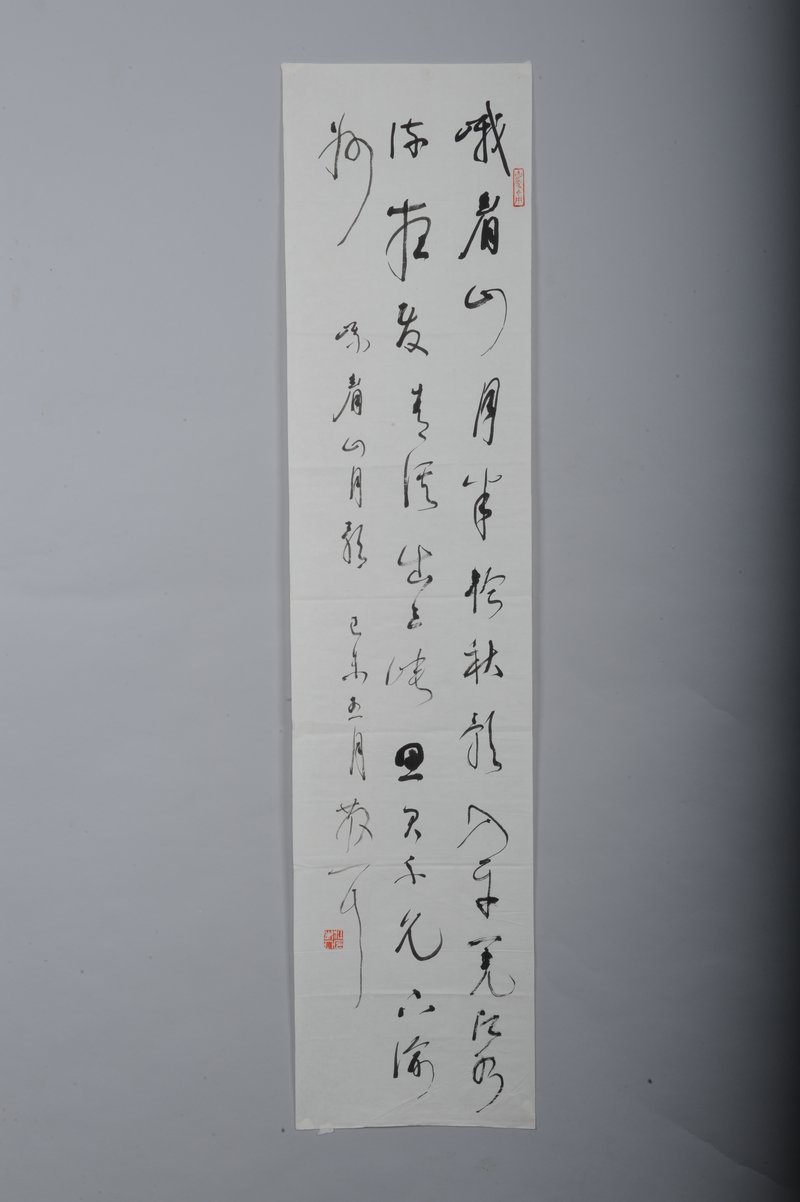 峨眉山月半輪秋影入平羌江水
流夜發清溪出三峽思君不見下渝
州 峨眉山月歌 己未五月 散耳